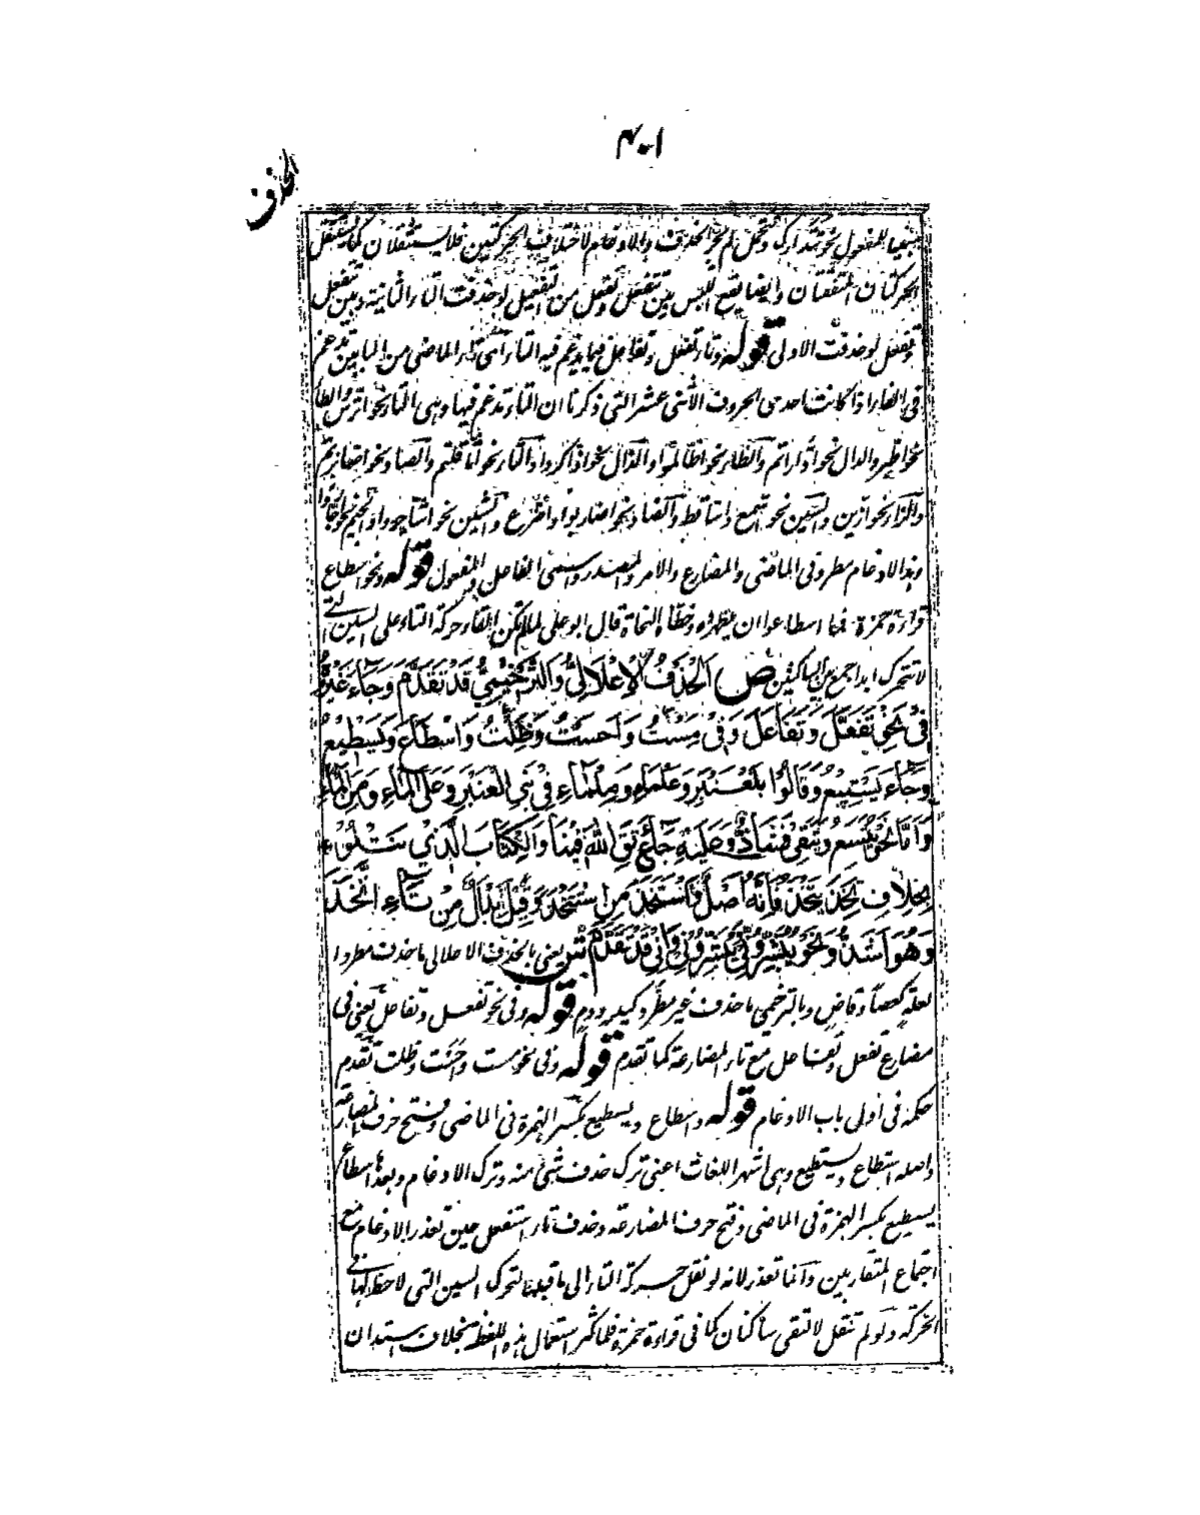 ٤٠١
الحذف
مبنيا للمفعول نحو تتدارك وتتحمل لم يجز الحذف والادغام لاختلاف الحركتين فلا يستثقلان كما يستثقل
الحركتان المتفقتان وايضا يقع اللبس بين تتفعل وتفعل من التفعيل لو حذفت التاء الثانية وبين تتفعل
وتفعل لو حذفت الاولى قوله وتاء تفعل وتفاعل فيما يدغم فيه التاء اى تاء الماضى من البابين تدغم
فى الفاء اذا كانت احدى الحروف الاثنى عشر التى ذكرنا ان التاء تدغم فيها وهى التاء نحو اترس والطاء
نحو اطير والدال نحو ادارأتم والظاء نحو اظالموا والذال نحو اذاكروا والثاء نحو اثاقلتم والصاد نحو اصابرتم
والزاء نحو ازين والسين نحو اسمع واساقط والضاد نحو اضاربوا واضرع والشين نحو اشاجروا والجيم نحو اجاءروا
وهذا الادغام مطرد فى الماضى والمضارع والامر والمصدر واسمى الفاعل والمفعول قوله ونحو اسطاع
قراءة حمزة فما اسطاعوا ان يظهروه وخطأه النحاة قال ابو على لما لم يمكن القاء حركة التاء على السين التى
لا تتحرك ابدا جمع بين الساكنين ص الْحَذْفُ الْاِعْلَالِىُّ وَالتَّرْخِيْمِىُّ قَدْ تَقَدَّمَ وَجَاءَ غَيْرُهُ
فِىْ نَحْوِ تَفَعَّلَ وَتَفَاعَلَ وَفِىْ مِسْتُ وَاَحَسْتُ وَظِلْتُ وَاسْطَاعَ وَيَسْطِيْعُ
وَجَاءَ يَسْتِيْعُ وَقَالُوْا بَلْعَنْبَرِ وَعَلْمَاءِ وَمِلْمَاءِ فِىْ بَنِى الْعَنْبَرِ وَعَلَى الْمَاءِ وَمِنَ الْمَاءِ
وَاَمَّا نَحْوُ يَتَسِعُ وَيَتَقِىْ فَشَاذٌّ وَعَلَيْهِ جَاءَ تَقِ اللّٰهَ فِيْنَا وَالْكِتَابَ الَّذِىْ تَتْلُوْا
بِخِلَافِ تَخِذَ يَتْخَذُ فَاِنَّهُ اَصْلٌ وَاسْتَخَذَ مِنْ اسْتَتْخَذَ وَقِيْلَ اِبْدَالٌ مِنْ تَاءِ اتَّخَذَ
وَهُوَ اَشَذُّ وَنَحْوُ تُبَشِّرُوْنِىْ وَاِنِّىْ قَدْ تَقَدَّمَ ش يعنى بالحذف الاعلالى ما حذف مطردا
لعلة كعصا وقاض وبالترخيمى ما حذف غير مطرد كيد ودم قوله وفى نحو تفعل وتفاعل يعنى فى
مضارع تفعل وتفاعل مع تاء المضارعة كما تقدم قوله وفى نحو مست واحست وظلت تقدم
حكمه فى اولى باب الادغام قوله واسطاع ويسطيع بكسر الهمزة فى الماضى وفتح حرف المضارعة
واصله استطاع ويستطيع وهى اشهر اللغات اعنى ترك حذف شئ منه وترك الادغام وبعدها اسطاع
يسطيع بكسر الهمزة فى الماضى وفتح حرف المضارعة وحذف تاء استفعل حين تعذر الادغام مع
اجتماع المتقاربين وانما تعذر لانه لو نقل حركة التاء الى ما قبلها لتحرك السين التى لا حظ لها فى
الحركة ولو لم تنقل لالتقى ساكنان كما فى قراءة حمزة فلما كثر استعمال هذه اللفظ بخلاف استدان